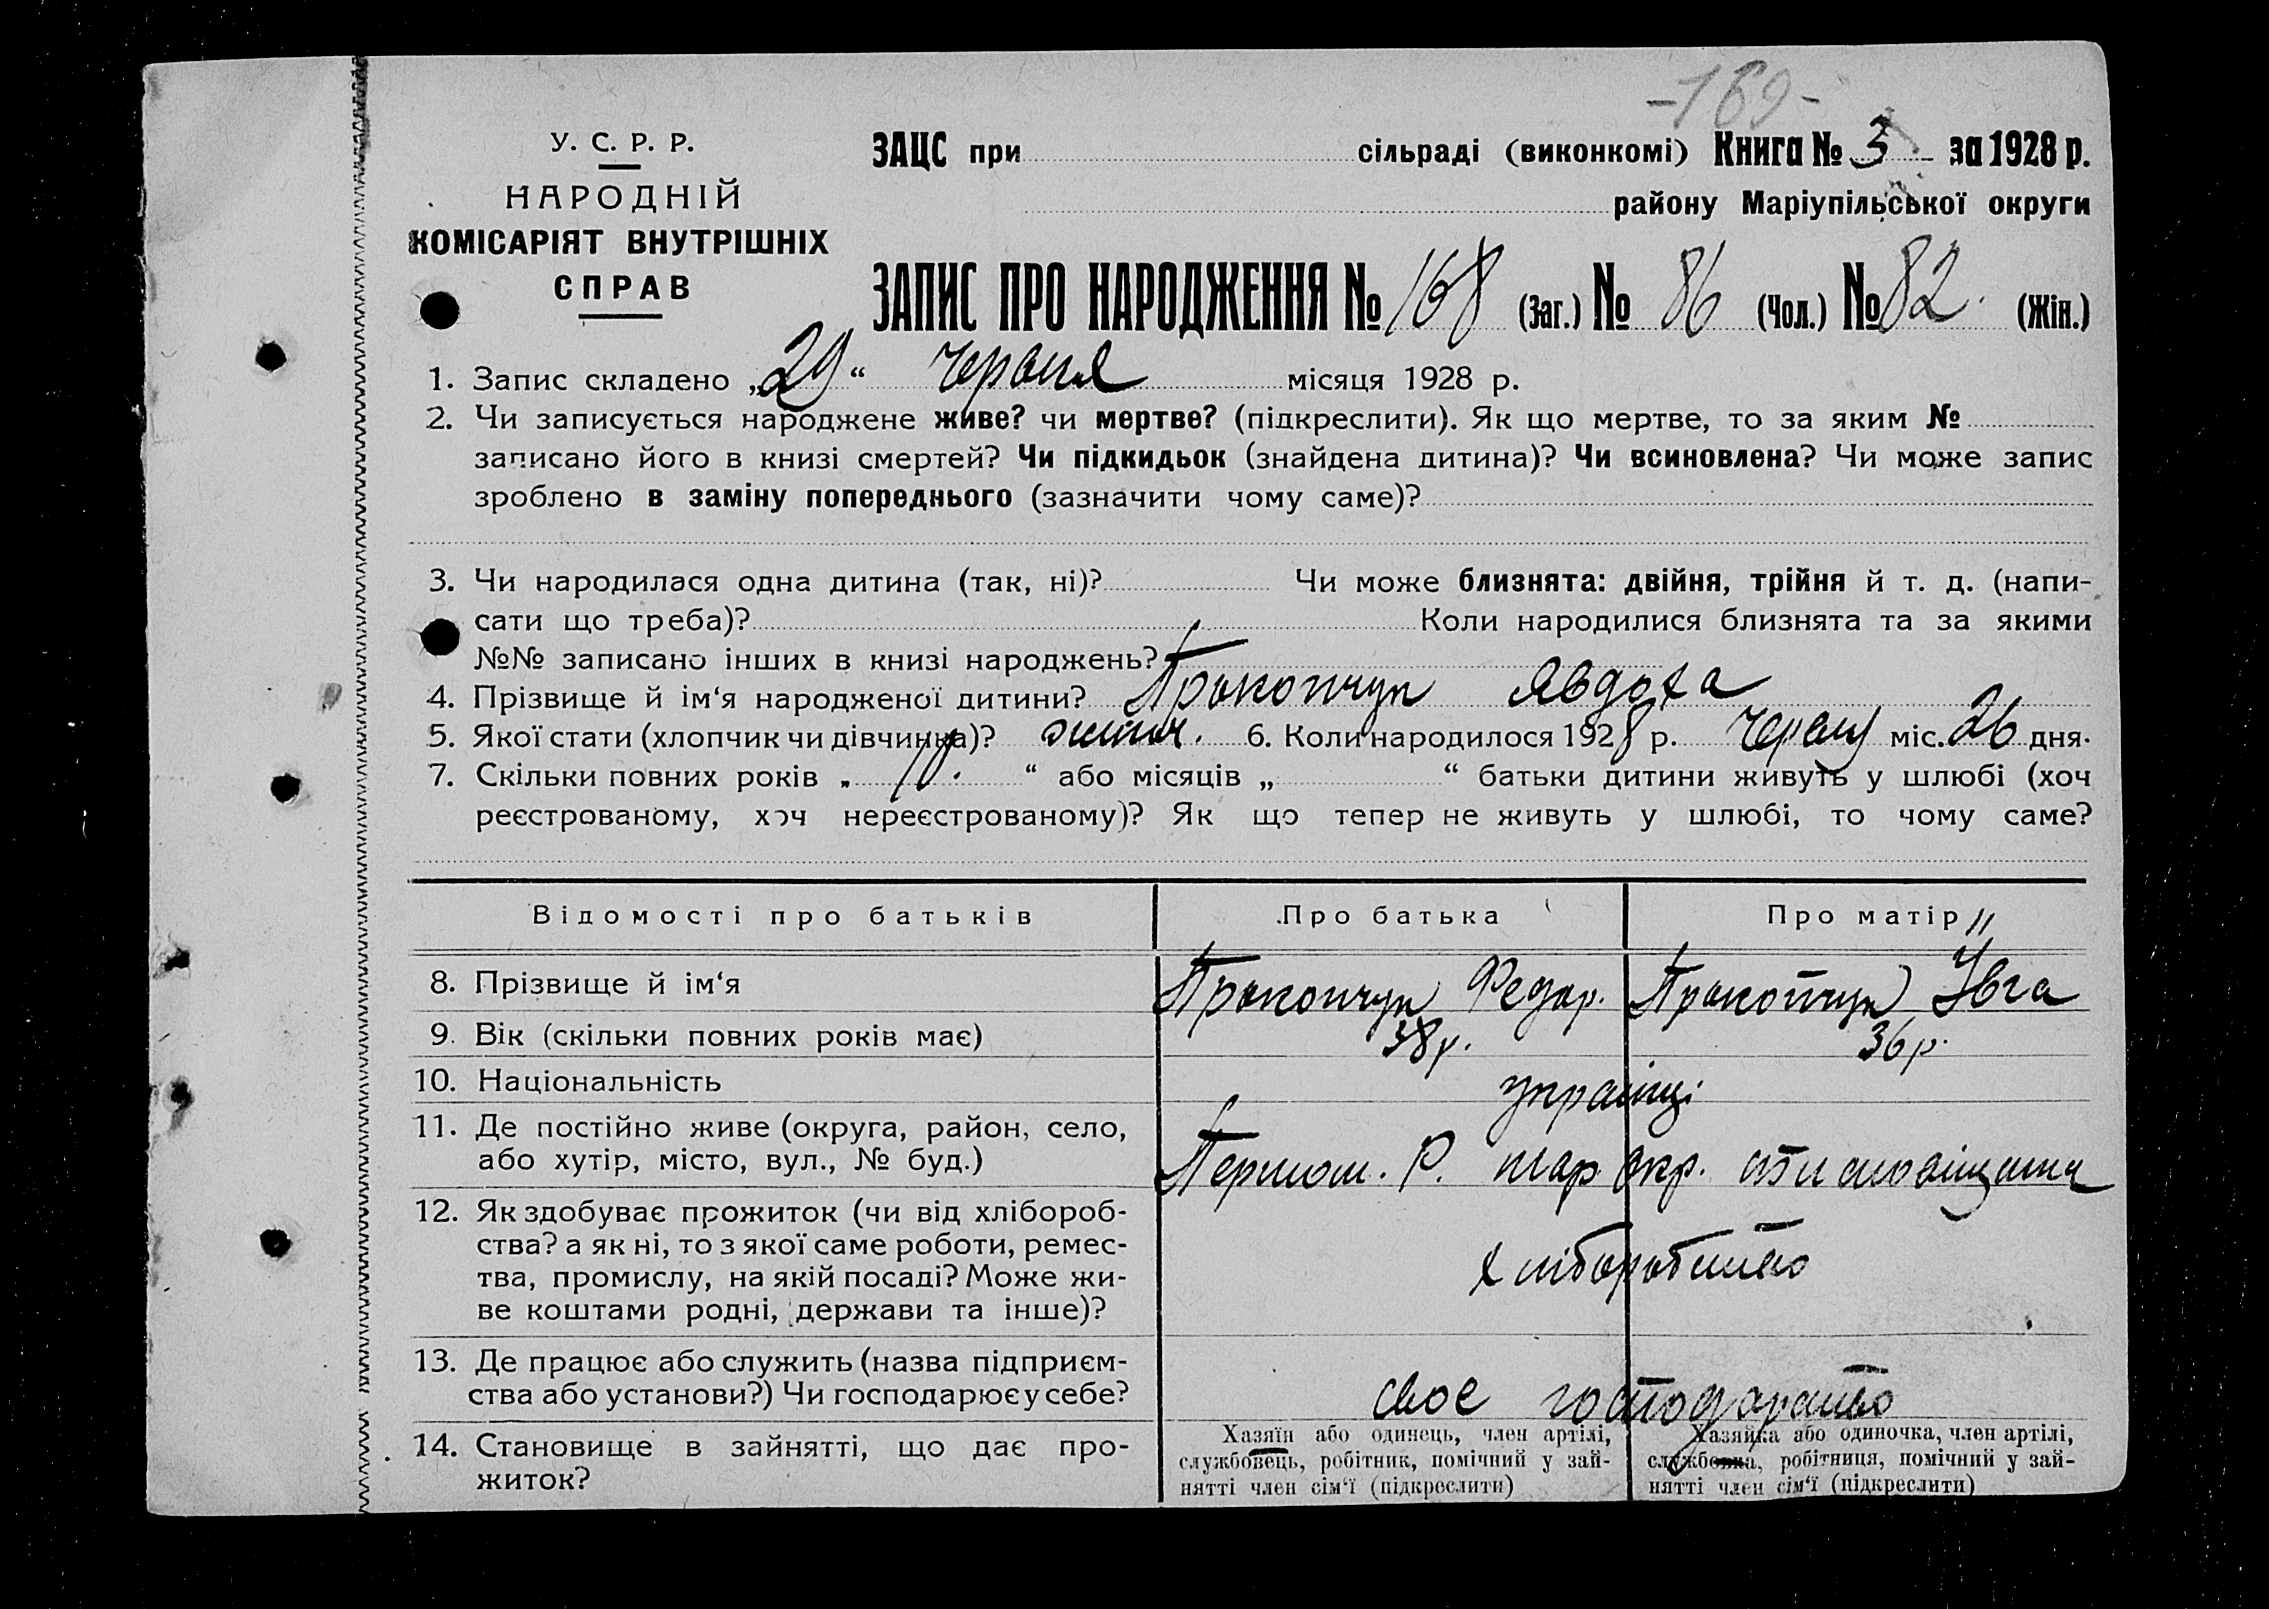 -169-
У. С. Р. Р.
НАРОДНІЙ
КОМІСАРІЯТ ВНУТРІШНІХ
СПРАВ
ЗАЦС при сільраді (виконкомі) Книга № 3 за 1928 р.
району Маріупільської округи
ЗАПИС ПРО НАРОДЖЕННЯ № 168 (Заг.) № 86 (Чол.) № 82. (Жін.)
1. Запис складено „29“ червня місяця 1928 р.
2. Чи записується народжене живе? чи мертве? (підкреслити). Як що мертве, то за яким №
записано його в книзі смертей? Чи підкидьок (знайдена дитина)? Чи всиновлена? Чи може запис
зроблено в заміну попереднього (зазначити чому саме)?
3. Чи народилася одна дитина (так, ні)? Чи може близнята: двійня, трійня й т. д. (напи-
сати що треба)? Коли народилися близнята та за якими
№№ записано інших в книзі народжень?
4. Прізвище й ім‘я народженої дитини? Прокопчук Явдоха
5. Якої стати (хлопчик чи дівчинка)? 6. Коли народилося 1928 р. червня міс. 26 дня.
7. Скільки повних років „ “ або місяців „ “ батьки дитини живуть у шлюбі (хоч
реєстрованому, хоч нереєстрованому)? Як що тепер не живуть у шлюбі, то чому саме?
Відомості про батьків Про батька Про матір
8. Прізвище й ім‘я Прокопчук Федор. Прокопчук Ївга
9. Вік (скільки повних років має) 38р. 36р.
10. Національність українці
11. Де постійно живе (округа, район, село,
або хутір, місто, вул., № буд.) Р. мар окр.
12. Як здобуває прожиток (чи від хлібороб-
ства? а як ні, то з якої саме роботи, ремес-
тва, промислу, на якій посаді? Може жи-
ве коштами родні, держави та інше)?
хліборобство
13. Де працює або служить (назва підприєм-
ства або установи?) Чи господарює у себе? своє господарство
14. Становище в зайнятті, що дає про-
житок?
Хазяїн або одинець, член артілі,
службовець, робітник, помічний у зай-
нятті член сім‘ї (підкреслити)
Хазяйка або одиночка, член артілі,
службовка, робітниця, помічний у зай-
нятті член сім‘ї (підкреслити)